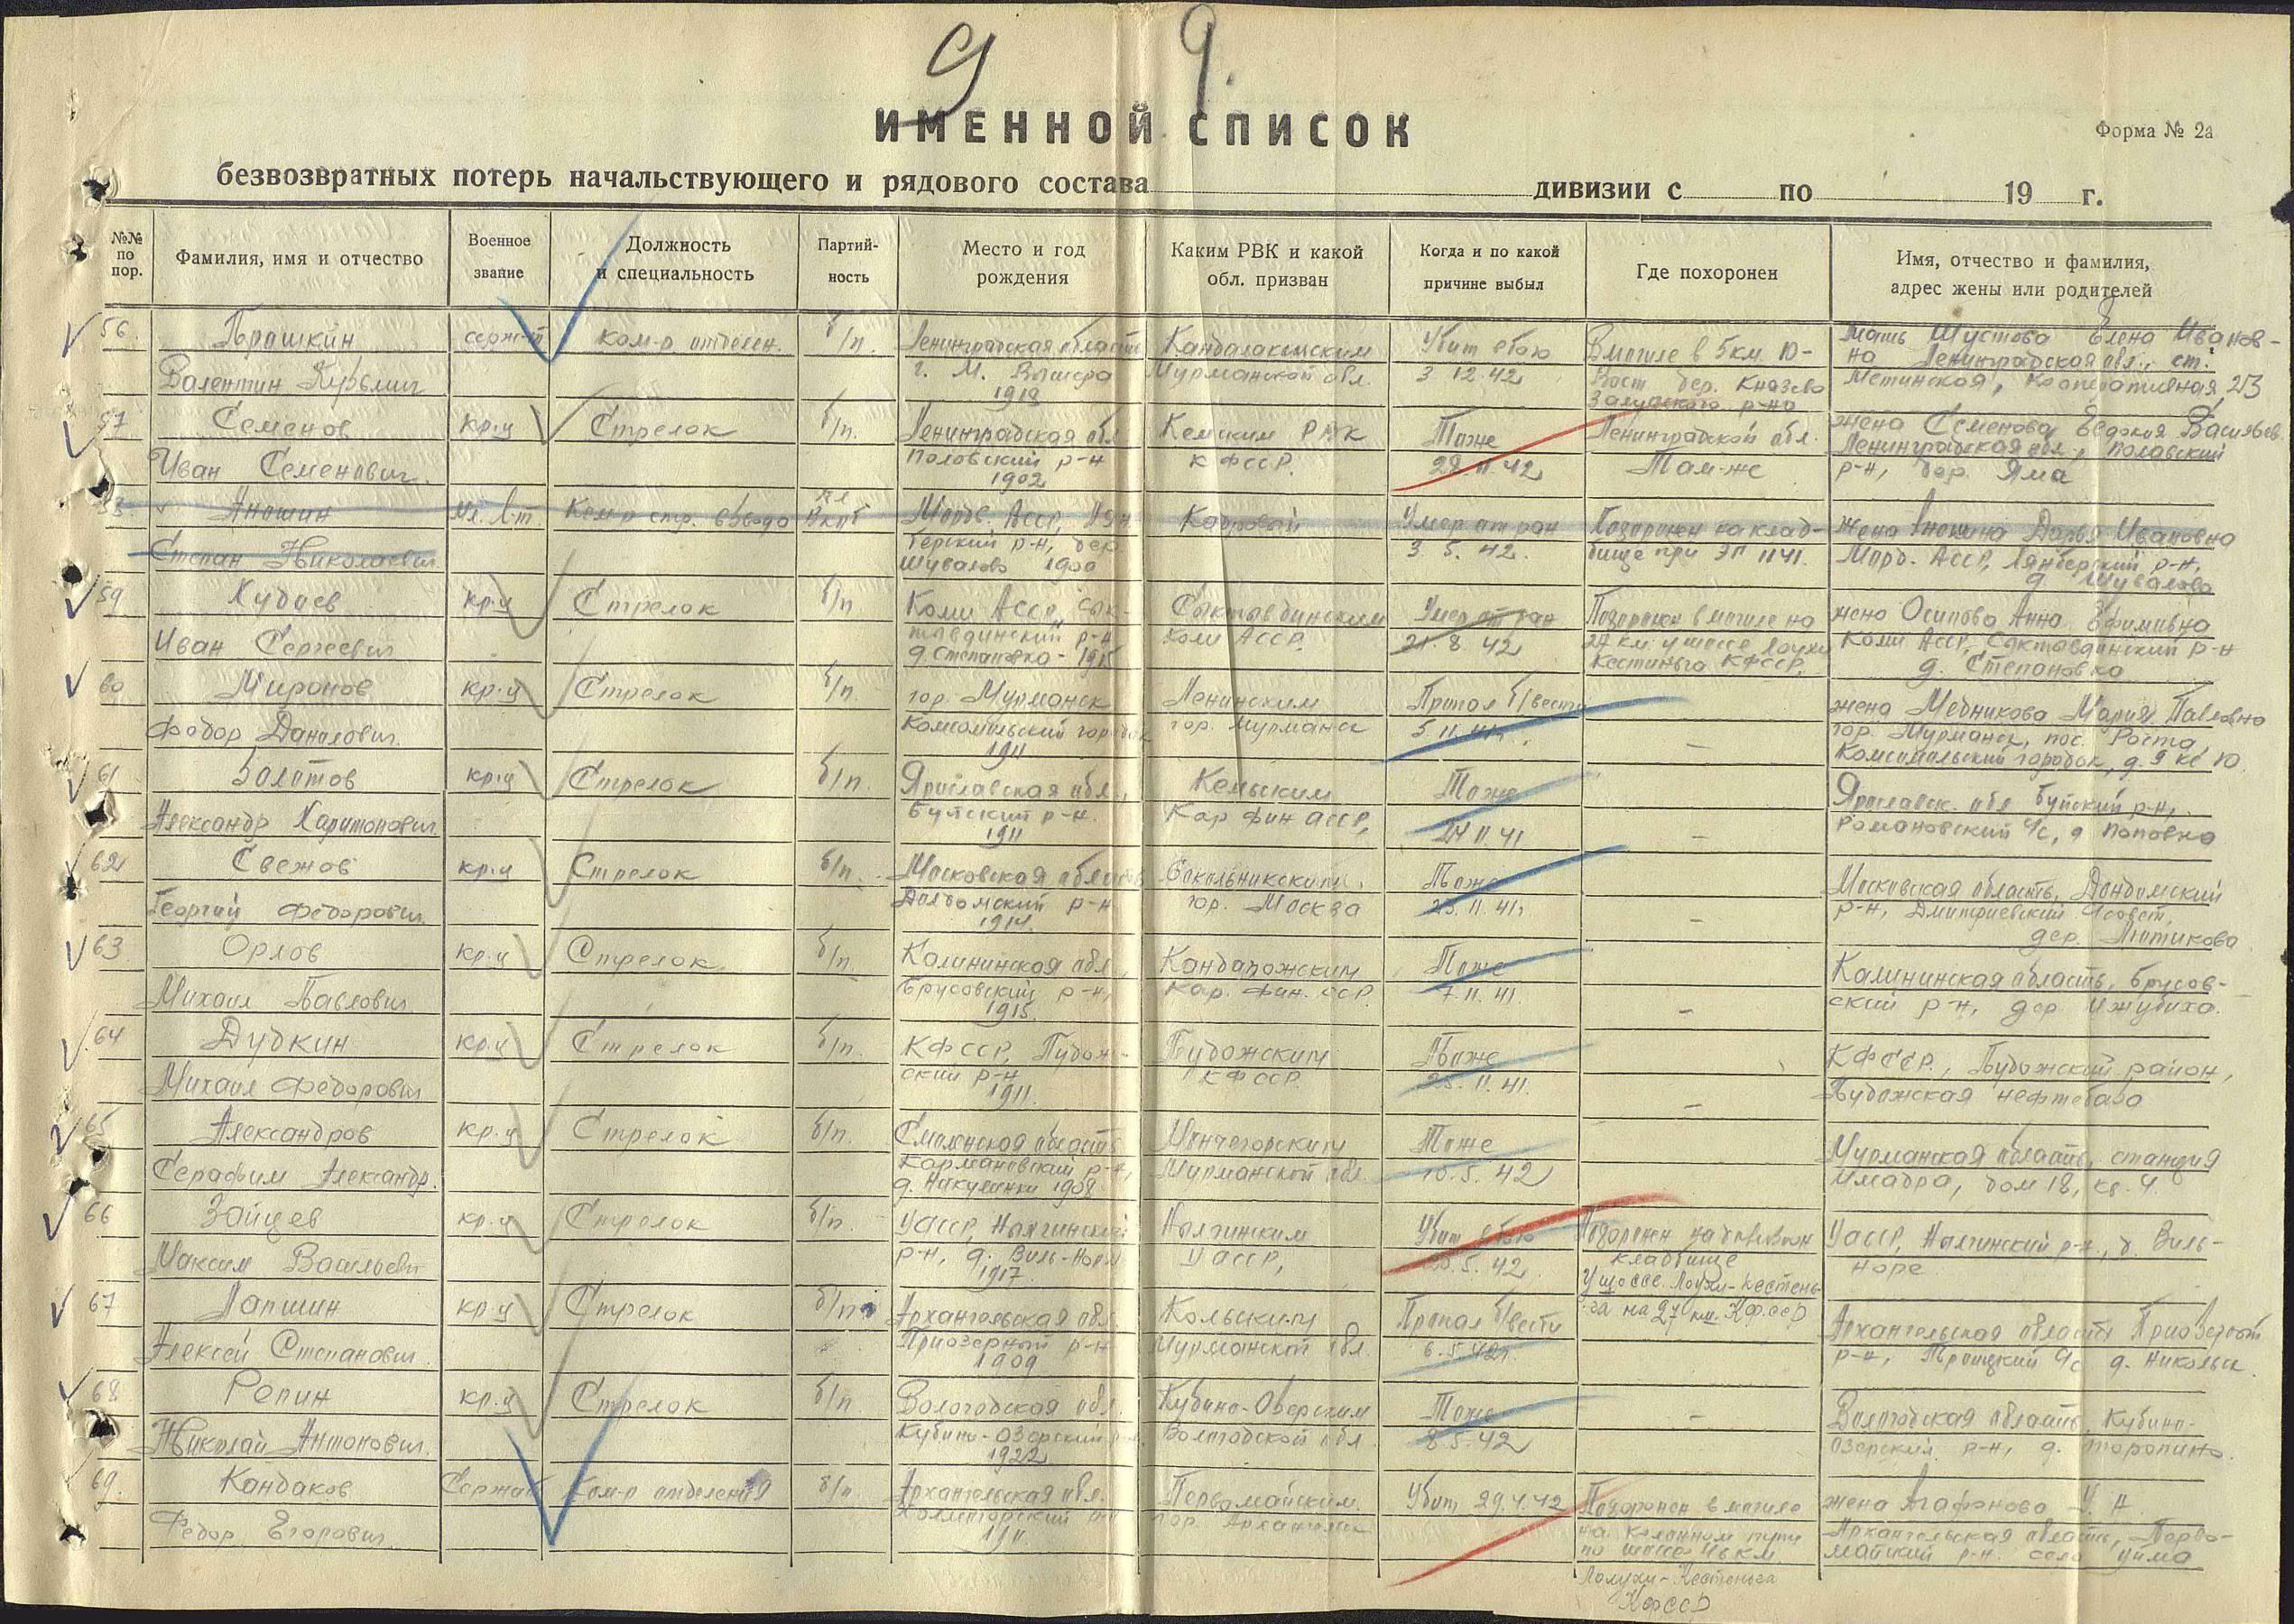 9 9.
ИМЕННОЙ СПИСОК
Форма № 2а
безвозвратных потерь начальствующего и рядового состава дивизии с по 19 г.
№№ по пор.
Фамилия, имя и отчество
Военное звание
Должность и специальность
Партий-ность
Место и год рождения
Каким РВК и какой обл. призван
Когда и по какой причине выбыл
Где похоронен
Имя, отчество и фамилия, адрес жены или родителей
56. Брашкин серж-т ком-р отделен. б/п. Ленинградская область Кандалакшским Убит в бою В могиле в 5 км. Ю- Мать Шустова Елена Иванов-
Валентин Кузьмич г. М. Вишера Мурманской обл. 3 12.42 Вост дер. Князево на Ленинградская обл., ст.
1918 Залучского р-на Мстинская, Кооперативная, 23
57 Семенов кр-ц Стрелок б/п. Ленинградская обл. Кемским РВК Тоже Ленинградской обл. жена Семенова Евдокия Васильев.
Иван Семенович. Половский р-н КФССР. 28.11.42 Там-же Ленинградская обл, Полавский
1902 р-н, дер. Яма
Аношин мл. л-т Ком-р стр. взвода Морд. АССР, Лян- Кадровый Умер от ран Похоронен на клад- жена Аношина Дарья Ивановна
Степан Николаевич берский р-н, дер. 3. 5. 42. бище при ЭП 1141. Морд. АССР, Лямберский р-н,
Шувалово 1900 д Шувалово
59 Худаев кр-ц Стрелок б/п Коми АССР, Сык- Сыктывдинским Умер от ран Похоронен в могиле на жена Осипова Анна Ефимовна
Иван Сергеевич тывдинский р-н Коми АССР. 21. 8 42 27 км. у шоссе Лоухи Коми АССР, Сыктывдинский р-н
д. Степановка - 1915 Кестеньга КФССР. д. Степановка
60 Миронов кр-ц Стрелок б/п. гор. Мурманск Ленинским Пропал б/вести жена Медникова Мария Павловна
Федор Данилович. Комсомольский городок гор. Мурманск 5 11. 41г. – гор. Мурманск, пос. Роста,
1911 Комсомольский городок, д. 9 кв 10.
61 Золотов кр-ц Стрелок б/п. Ярославская обл., Кемским Тоже Ярославск. обл Буйский р-н,
Александр Харитонович Буйский р-н. Кар фин АССР, 24 11. 41 – Романовский с/с, д Поповка
1911
62 Свежов кр-ц Стрелок б/п. Московская область Сокольникским, Тоже Московская область,
Георгий Федорович гор. Москва 25. 11. 41г – р-н, Дмитриевский с/совет,
1914. дер. Лютикова
63 Орлов кр-ц Стрелок б/п. Калининская обл, Кандапожским Тоже Калининская область, Брусов-
Михаил Павлович Брусовский р-н, Кар. Фин. ССР. 7. 11. 41. – ский р-н, дер
1915.
64 Дудкин кр-ц Стрелок б/п. КФССР, Пудож- Пудожским Тоже КФССР, Пудожский район,
Михаил Федорович ский р-н КФССР. 25. 11. 41. – Пудожская нефтебаза
1911.
65 Александров кр-ц Стрелок б/п. Смоленская область Мончегорским Тоже Мурманская область, станция
Серафим Александр. Кармановский р-н, Мурманской обл. 10. 5. 42 Имадра, дом 18, кв. 4.
д. Никулинки 1908
66 Зайцев кр-ц Стрелок б/п. УАССР, Нылгинский Нылгинским Убит в бою Похоронен на дивизион УАССР, Нылгинский р-н, д. Виль-
Максим Васильевич р-н, д. Виль-Норья УАССР, 5. 42 кладбище норе
1917. у шоссе. Лоухи-Кестень-
67 Лапшин кр-ц Стрелок б/п Архангельская обл. Кольским Пропал б/вести га на 27 км. КФССР Архангельская область Приозерный
Алексей Степанович Приозерный р-н Мурманской обл. 6. 5. 42г. р-н, Троицкий с/с д. Никольск.
1909
68 Репин кр-ц Стрелок б/п. Вологодская обл. Кубино-Озерским Тоже – Вологодская область, Кубино-
Николай Антонович. Кубино-Озерский Вологодской обл 8. 5. 42 озерский р-н, д. Торопино.
1922
69. Кандаков Сержант Ком-р отделения б/п. Архангельская обл. Первомайским. Убит 29.4.42 Похоронен в могиле жена Агафонова У. А
Федор Егорович. Холмогорский р-н гор. Архангельск на колонном пути Архангельская область, Перво-
1911. по шоссе 46 км. майский р-н. село Уйма
Лоухи-Кестеньга
КФССР